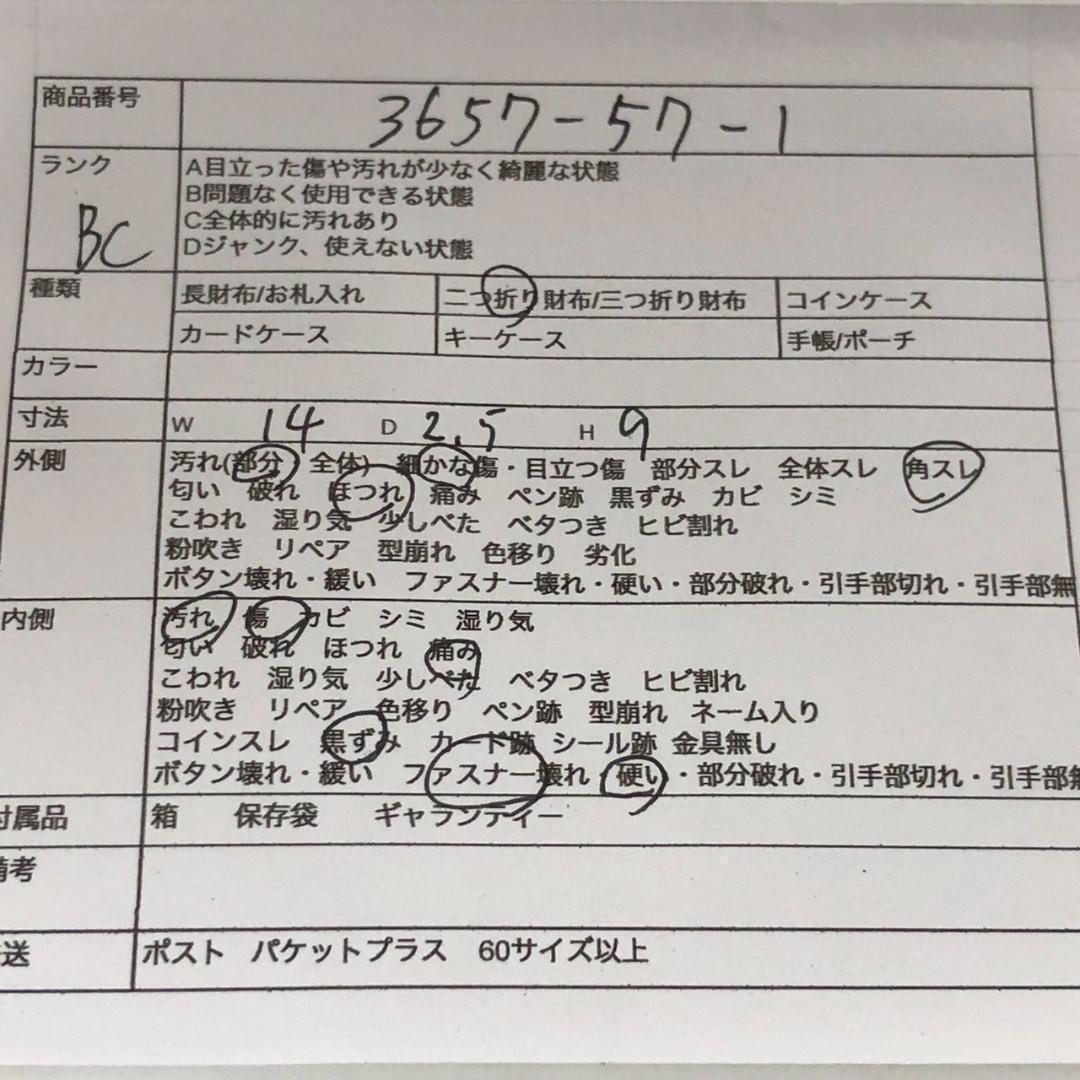 商品番号 3657-57-1
ランク BC
A目立った傷や汚れが少なく綺麗な状態
B問題なく使用できる状態
C全体的に汚れあり
Dジャンク、使えない状態
種類 長財布/お札入れ 二つ折り財布/三つ折り財布 コインケース
カードケース キーケース 手帳/ポーチ
カラー
寸法 W 14 D 2.5 H 9
外側 汚れ(部分 全体) 細かな傷・目立つ傷 部分スレ 全体スレ 角スレ
匂い 破れ ほつれ 痛み ペン跡 黒ずみ カビ シミ
こわれ 湿り気 少しべた ベタつき ヒビ割れ
粉吹き リペア 型崩れ 色移り 劣化
ボタン壊れ・緩い ファスナー壊れ・硬い・部分破れ・引手部切れ・引手部無
内側 汚れ 傷 カビ シミ 湿り気
匂い 破れ ほつれ 痛み
こわれ 湿り気 少しべた ベタつき ヒビ割れ
粉吹き リペア 色移り ペン跡 型崩れ ネーム入り
コインスレ 黒ずみ カード跡 シール跡 金具無し
ボタン壊れ・緩い ファスナー壊れ・硬い・部分破れ・引手部切れ・引手部無
付属品 箱 保存袋 ギャランティー
備考
送 ポスト パケットプラス 60サイズ以上